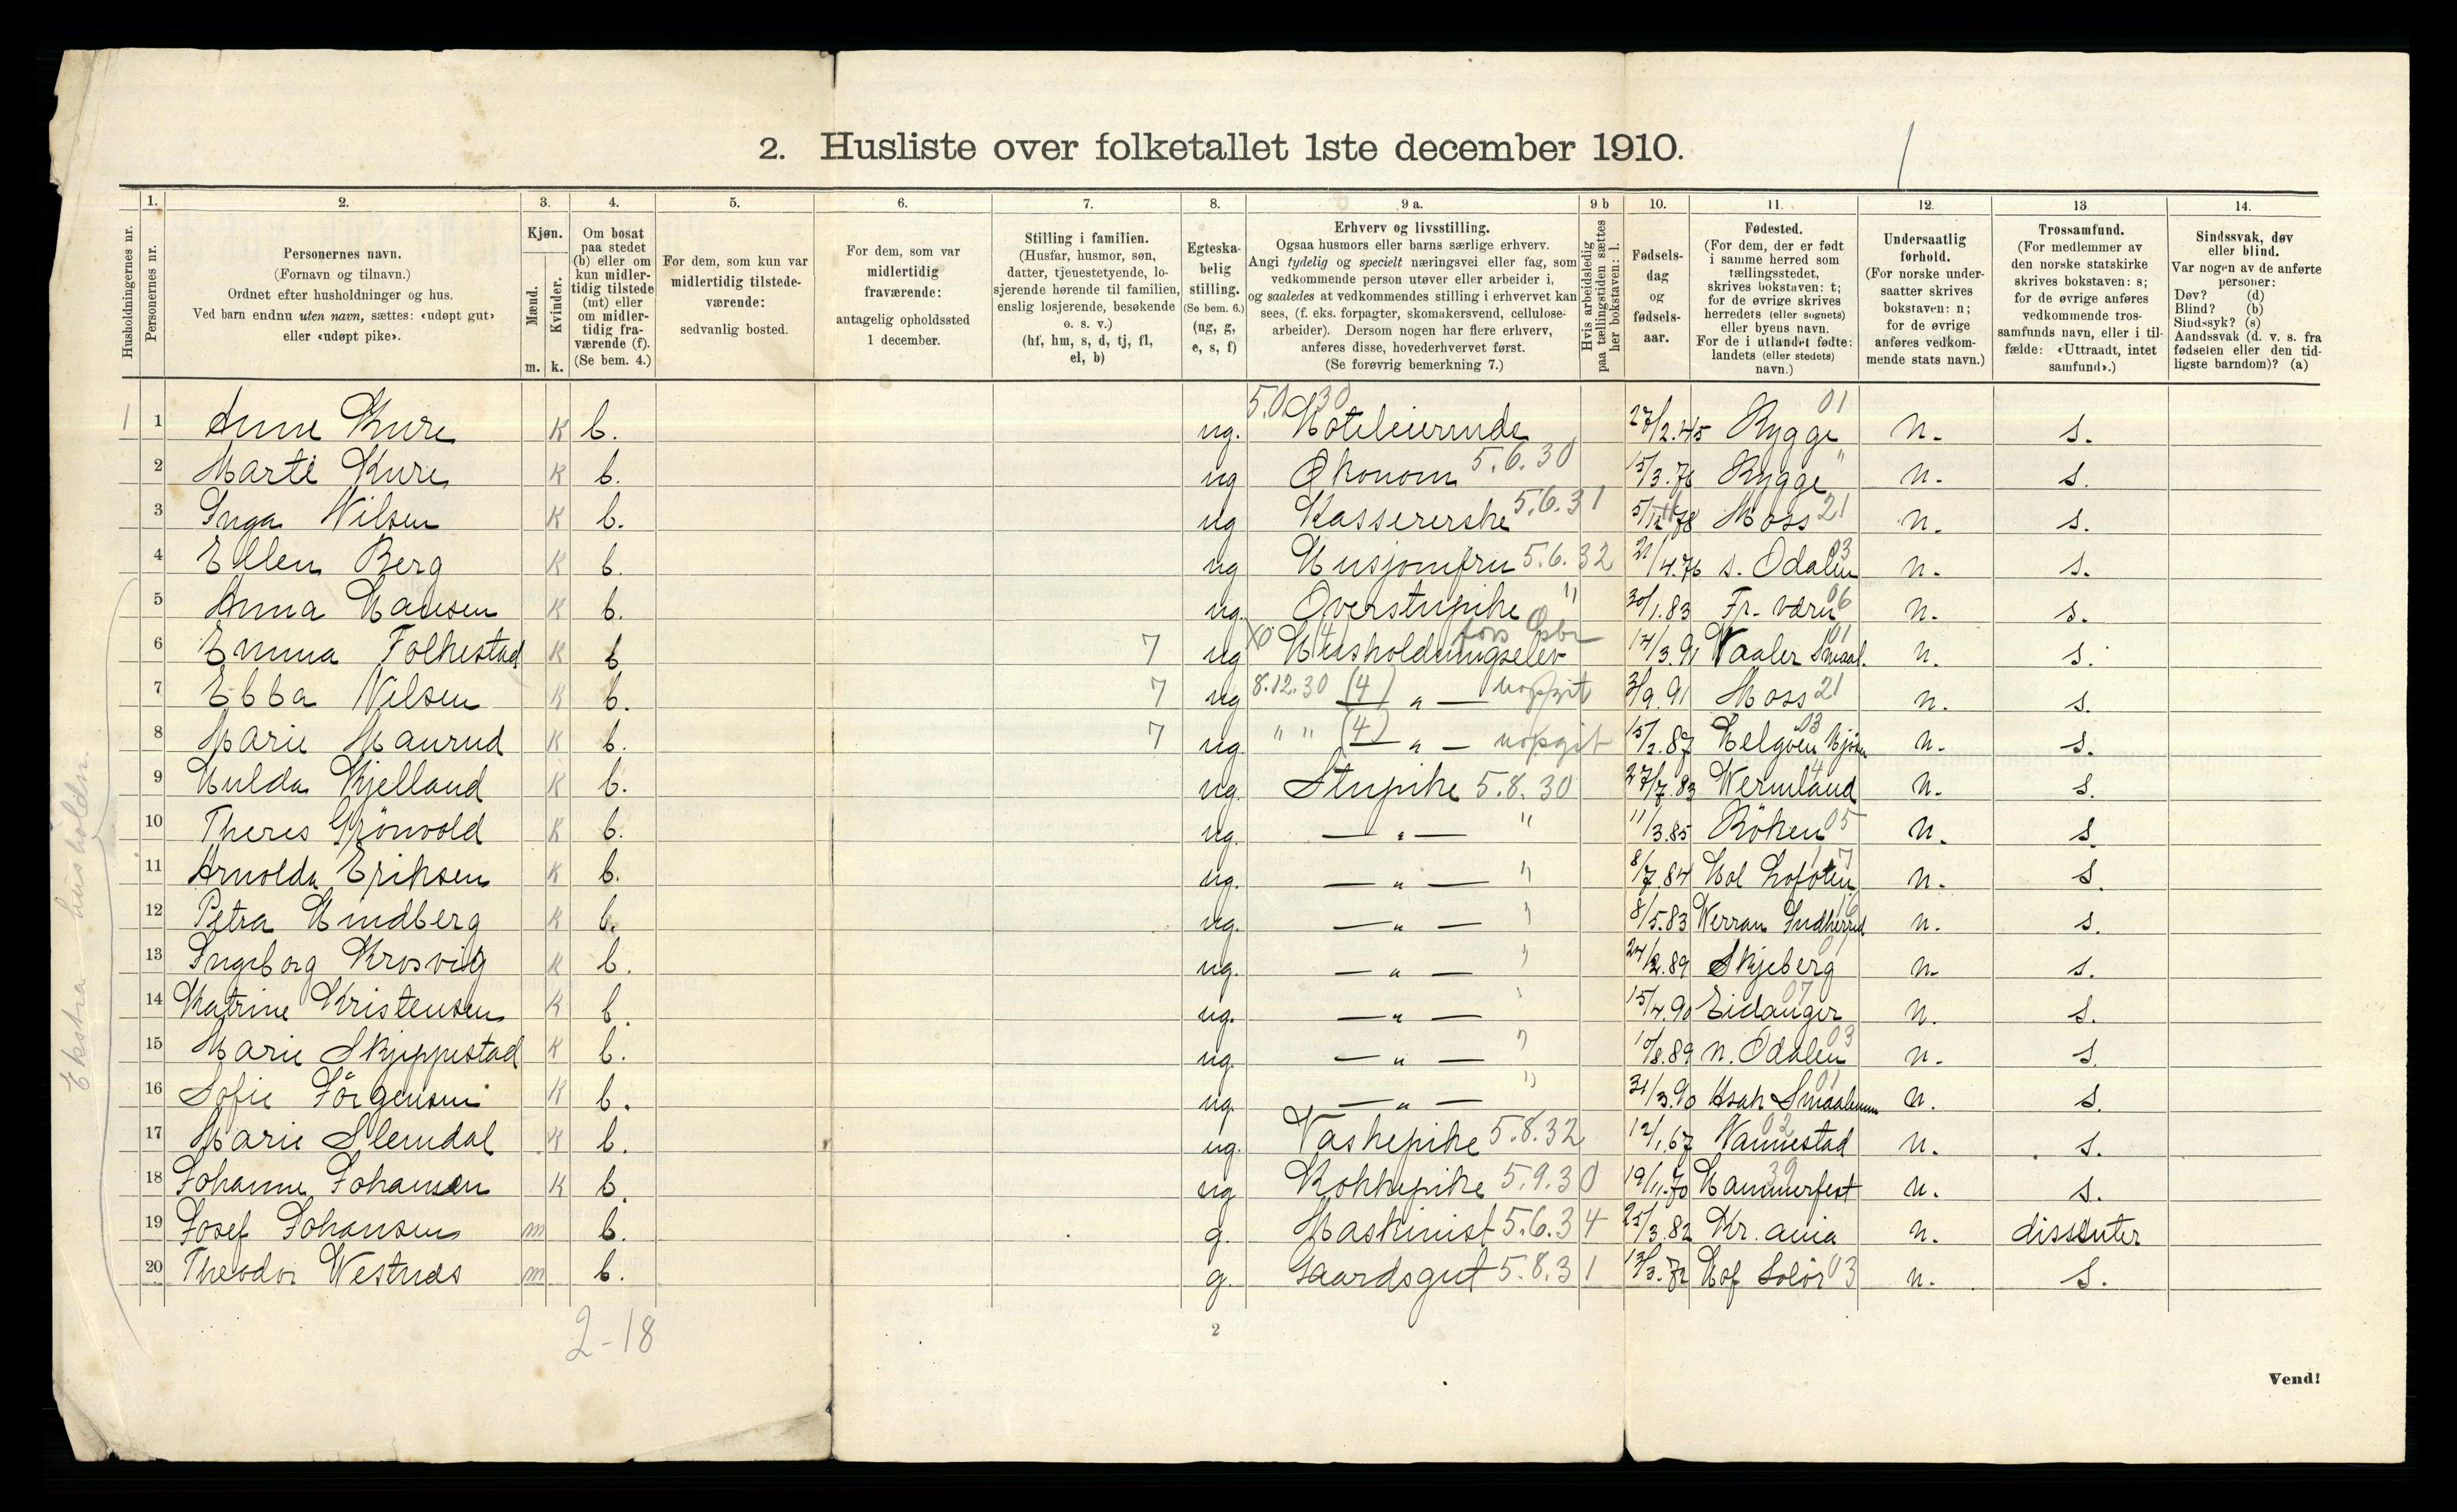 2. Husliste over folketallet 1ste december 1910.
Husholdningernes nr.
1.
Personernes nr.
2.
Personernes navn.
(Fornavn og tilnavn.)
Ordnet efter husholdninger og hus.
Ved barn endnu uten navn, sættes: «udøpt gut»
eller «udøpt pike».
3.
Kjøn.
Mænd.
Kvinder.
m. k.
4.
Om bosat
paa stedet
(b) eller om
kun midler-
tidig tilstede
(mt) eller
om midler-
tidig fra-
værende (f).
(Se bem. 4.)
5.
For dem, som kun var
midlertidig tilstede-
værende:
sedvanlig bosted.
6.
For dem, som var
midlertidig
fraværende:
antagelig opholdssted
1 december.
7.
Stilling i familien.
(Husfar, husmor, søn,
datter, tjenestetyende, lo-
sjerende hørende til familien,
enslig losjerende, besøkende
o. s. v.)
(hf, hm, s, d, tj, fl,
el, b)
8.
Egteska-
belig
stilling.
(Se bem. 6.)
(ug, g,
e, s, f)
9 a.
Erhverv og livsstilling.
Ogsaa husmors eller barns særlige erhverv.
Angi tydelig og specielt næringsvei eller fag, som
vedkommende person utøver eller arbeider i,
og saaledes at vedkommendes stilling i erhvervet kan
sees, (f. eks. forpagter, skomakersvend, cellulose-
arbeider). Dersom nogen har flere erhverv,
anføres disse, hovederhvervet først.
(Se forøvrig bemerkning 7.)
9 b
Hvis arbeidsledig
paa tællingstiden sættes
her bokstaven: l.
10.
Fødsels-
dag
og
fødsels-
aar.
11.
Fødested.
(For dem, der er født
i samme herred som
tællingsstedet,
skrives bokstaven: t;
for de øvrige skrives
herredets (eller sognets)
eller byens navn.
For de i utlandet fødte:
landets (eller stedets)
navn.)
12.
Undersaatlig
forhold.
(For norske under-
saatter skrives
bokstaven: n;
for de øvrige
anføres vedkom-
mende stats navn.)
13
Trossamfund.
(For medlemmer av
den norske statskirke
skrives bokstaven: s;
for de øvrige anføres
vedkommende tros-
samfunds navn, eller i til-
fælde: «Uttraadt, intet
samfund».)
14.
Sindssvak, døv
eller blind.
Var nogen av de anførte
personer:
Døv? (d)
Blind? (b)
Sindssyk? (s)
Aandssvak (d. v. s. fra
fødselen eller den tid-
ligste barndom)? (a)
1 1 Anne Kure K b. ug. Hoteleierinde 27/2.45 Rygge 01 n. s.
2 Marte Kure K b. ug Økonom 5.6.30 15/3.76 Rygge " n. s.
3 Inga Nilsen K b. ug Kassererske 5.6.31 Moss 21 n. s.
4 Ellen Berg K b. ug Husjomfru 5.6.32 21/4.76 s. Odalen 03 n. s.
5 Anna Hansen K b. ug. Overstupike " 30/1.83 Fr. værn 06 n. s.
6 Emma Folkestad K b 7 ug Husholdningselev 14/3.91 Vaaler Smaal. 01 n. s.
7 Ebba Nilsen K b. 7 ug 8.12.30 (4) — " — uopgit 3/9.91 Moss 21 n. s.
8 Marie Maurud K b. 7 ug. " " (4) — " — uopgit 15/2.87 Helgøen Mjøsen 03 n. s.
9 Hulda Kjelland K b. ug. Stupike 5.8.30 27/7.83 Wermland n. s.
10 Theres Grönvold K b. ug. — " — " 11/3.85 Röken 05 n. s
11 Arnolda Eriksen K b. ug. — " — " 8/7.84 Hol Lofoten n. s.
12 Petra Hindberg K b. ug. — " — " 8/5.83 Werran Indherred n. s.
13 Ingeborg Krosvig K b. ug. — " — " 24/2.89 Skjeberg n. s.
14 Katrine Kristensen K b. ug. — " — " 15/4.90 Eidanger 07 n. s.
15 Marie Skjeppestad K b. ug. — " — " 10/8.89 n. Odalen 03 n. s.
16 Sofie Jörgensen K b. ug. — " — " 31/3.90 Asak Smaalenene 01 n. s.
17 Marie Slemdal K b. ug. Vaskepike 5.8.32 12/1.67 Nannestad 02 n. s.
18 Johanne Johansen K b. ug Kokkepike 5.9.30 19/11.70 Hammerfest 39 n. s.
19 Josef Johansen m b. g. Maskinist 5.6.34 25/3.82 Kr. ania n. dissenter
20 Theodor Westnes m b. g. Gaardsgut 5.8.31 13/3.72 Hof Solör 03 n. s.
Ekstra husholdn.
2-18
2
Vend!